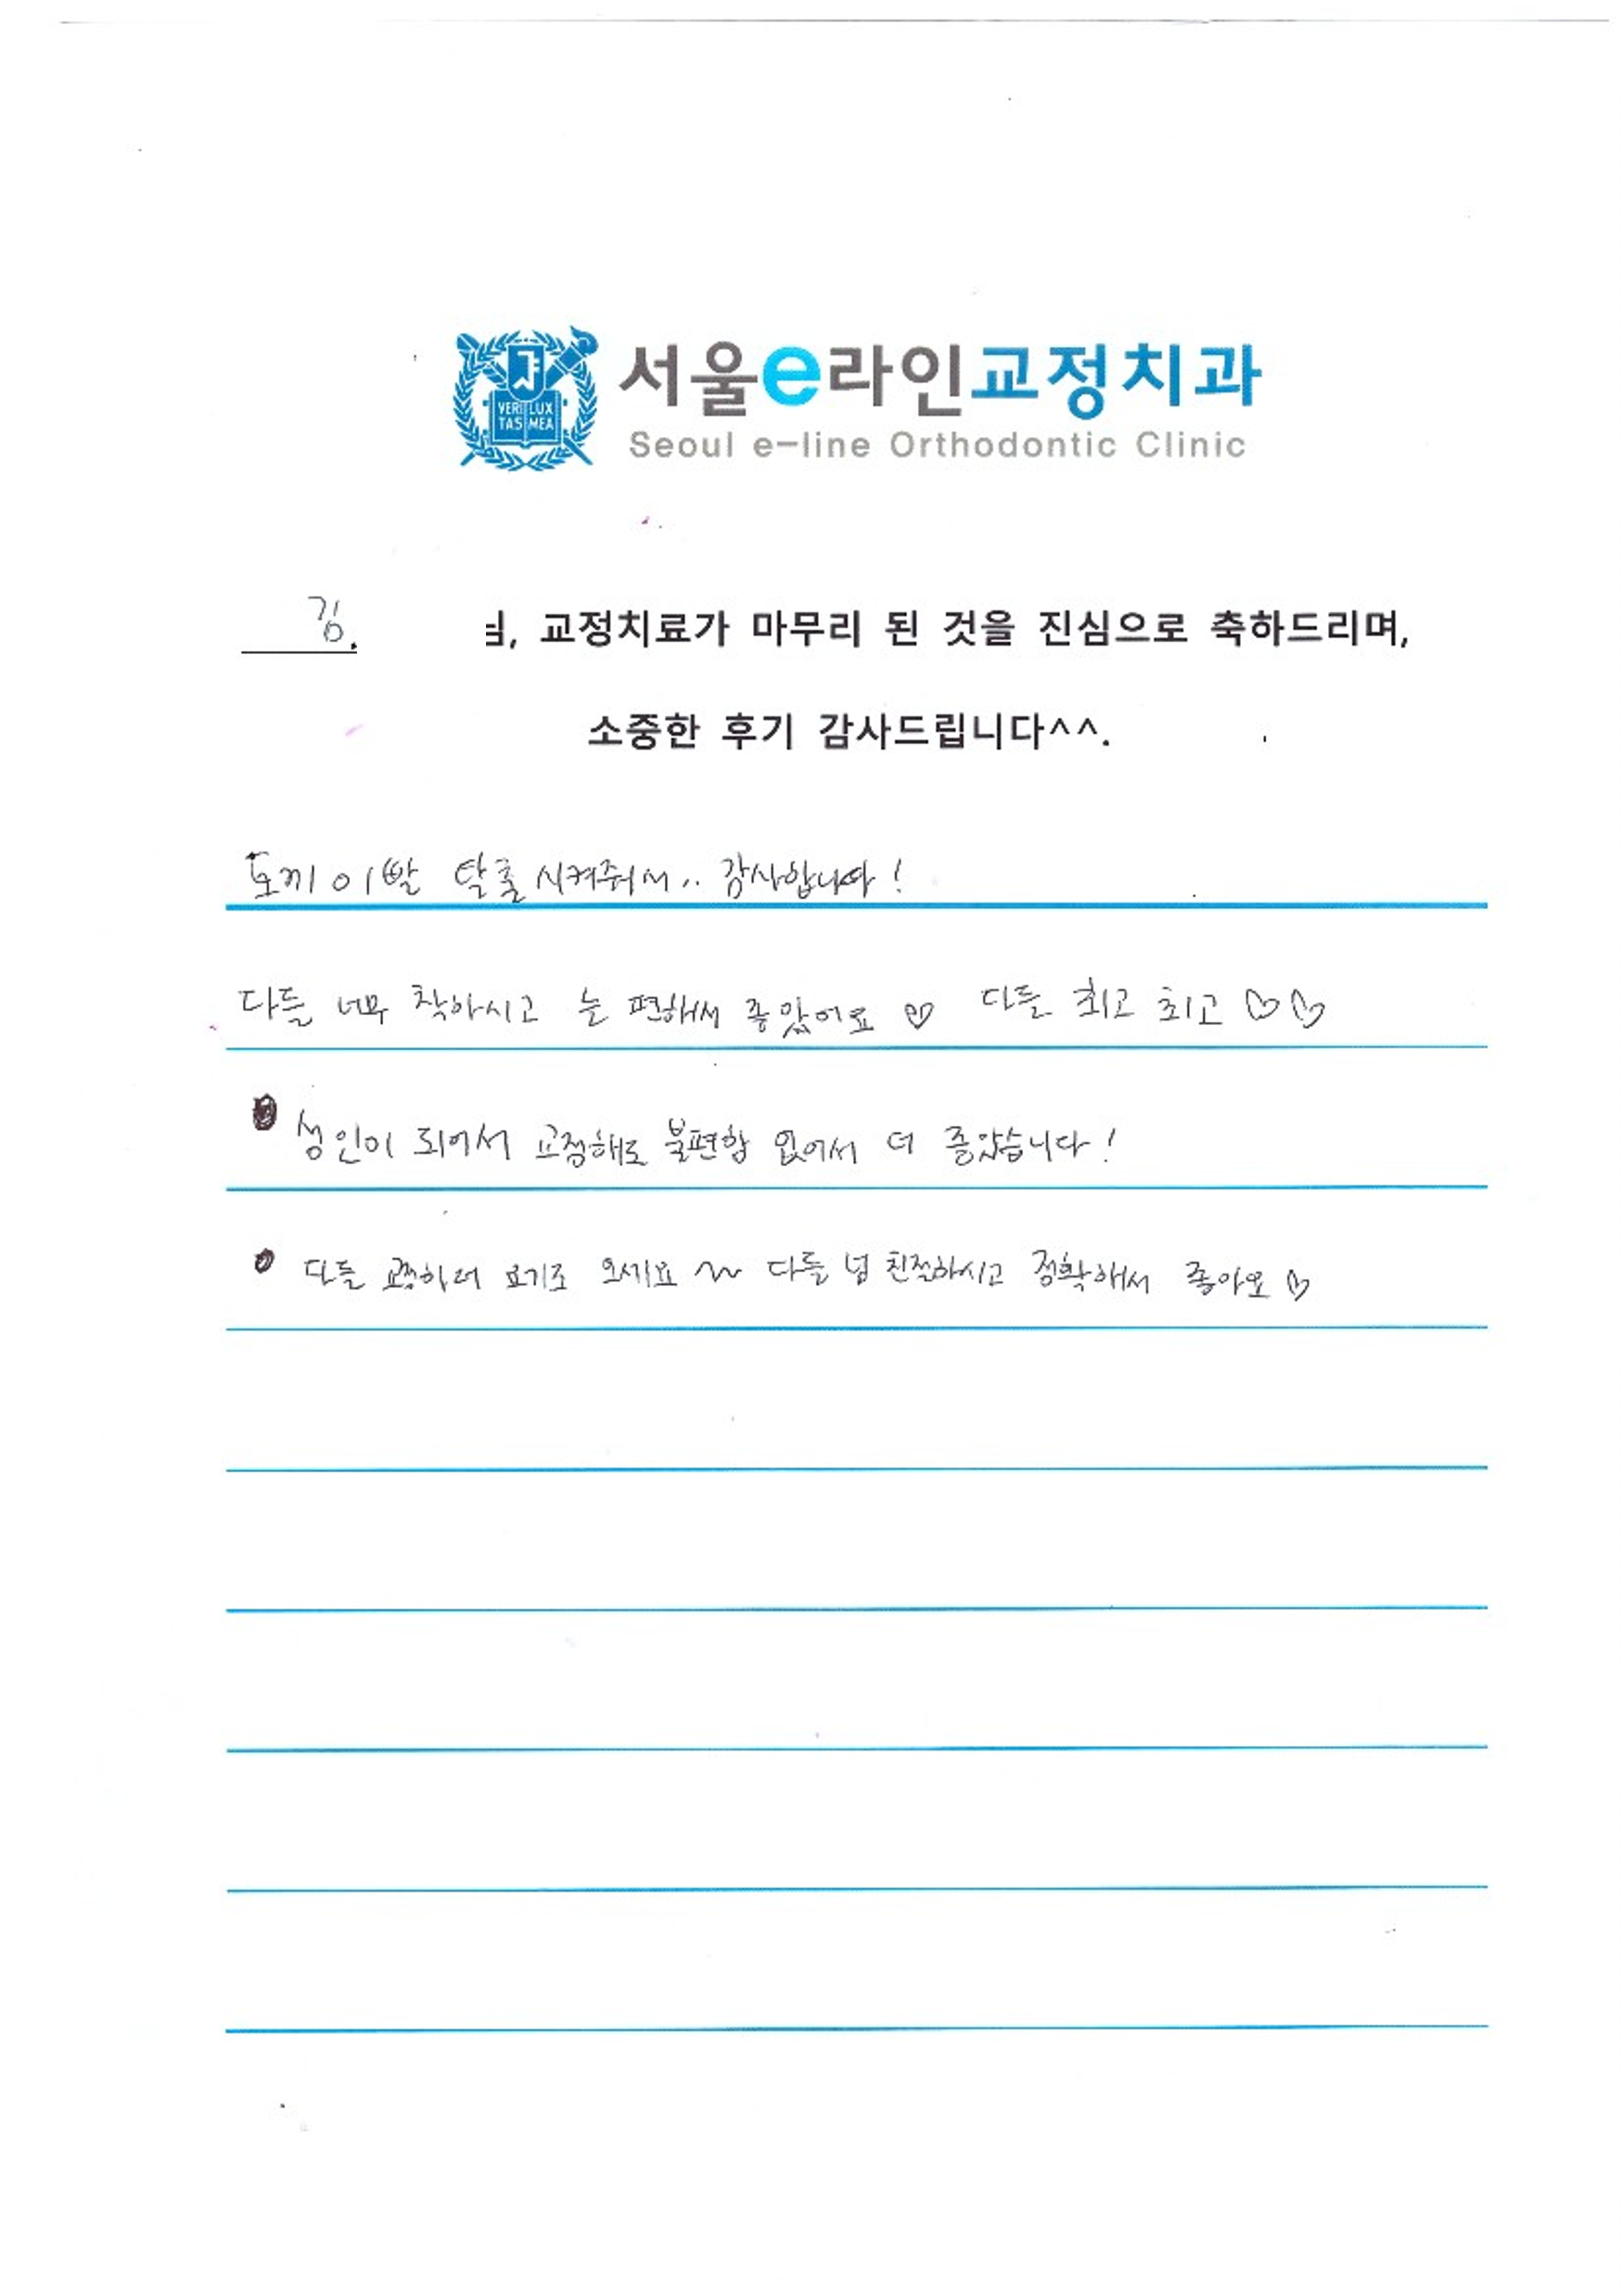 VERI LUX
TAS MEA
서울e라인교정치과
Seoul e-line Orthodontic Clinic
김. 님, 교정치료가 마무리 된 것을 진심으로 축하드리며,
소중한 후기 감사드립니다^^.
토끼이빨 탈출시켜줘서.. 감사합니다!
다들 너무 착하시고 늘 편해서 좋았어요 ♡ 다들 최고 최고 ♡♡
성인이 되어서 교정해도 불편함 없어서 더 좋았습니다!
다들 교정하러 요기로 오세요~~ 다들 넘 친절하시고 정확해서 좋아요 ♡